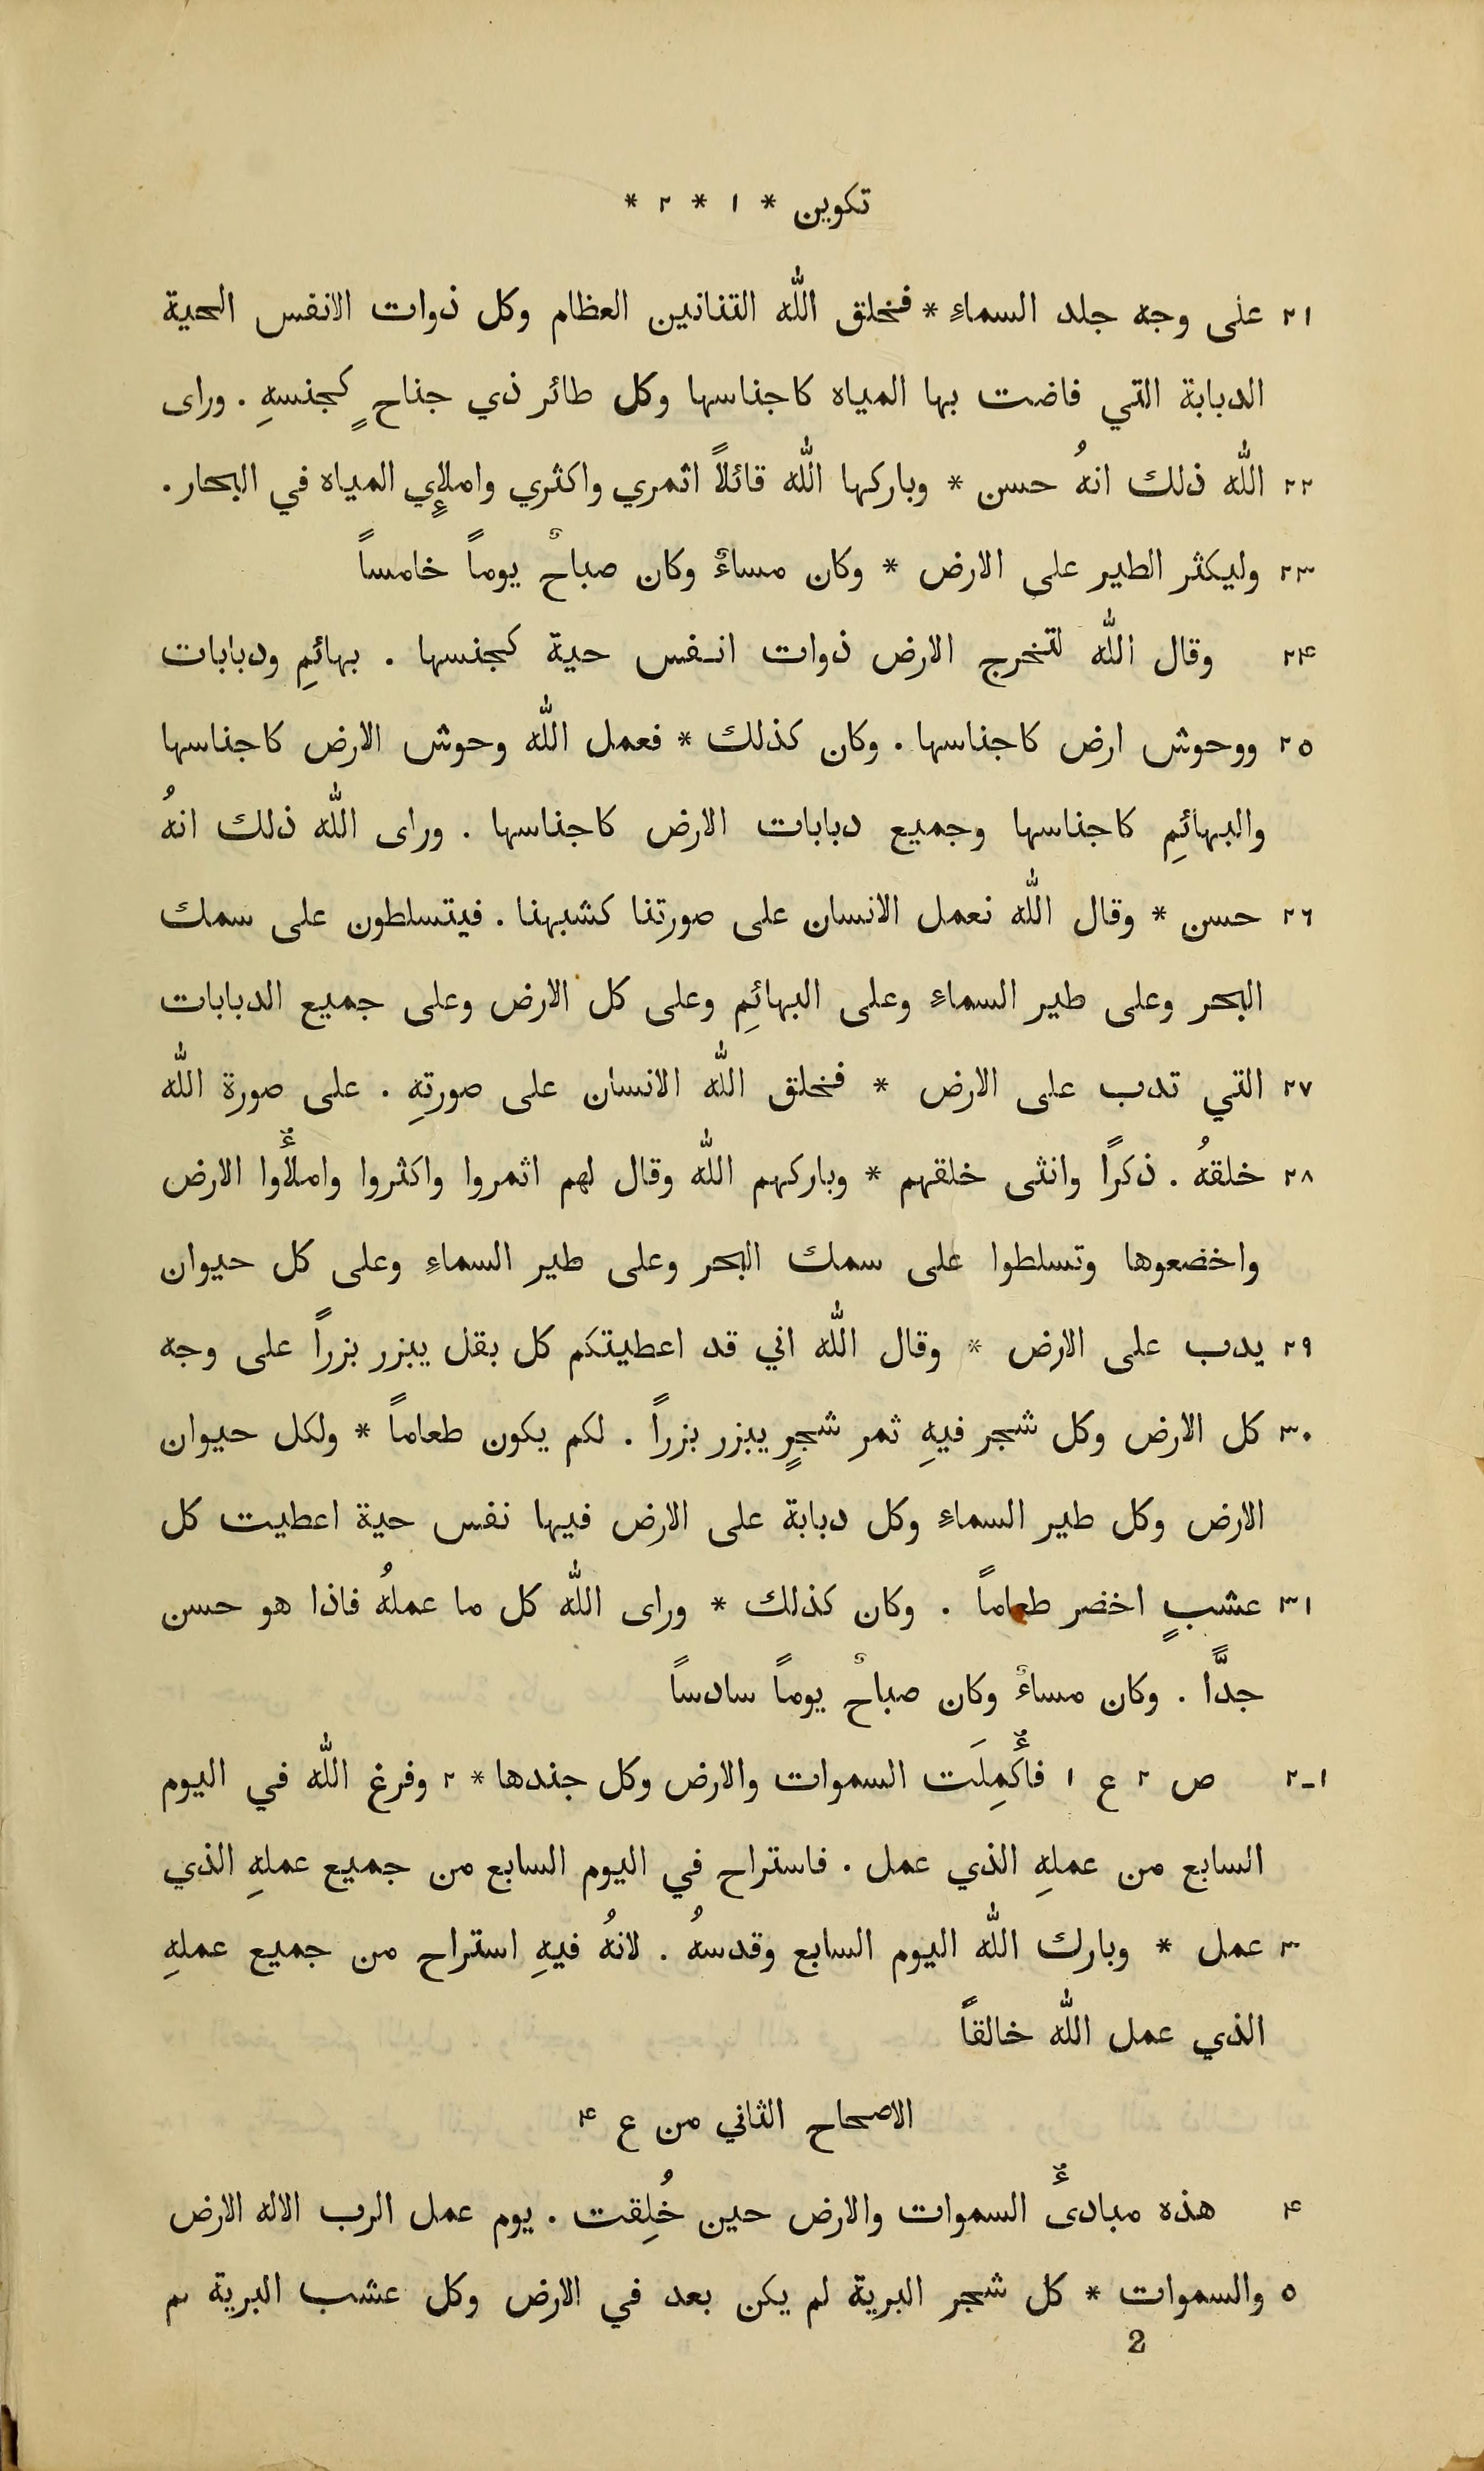 تكوين * ١ * ٢ *
٢١ على وجه جلد السماءِ * فخلق الله التنانين العظام وكل ذوات الانفس الحية
الدبابة التي فاضت بها المياه كاجناسها وكل طائر ذي جناحٍ كجنسهِ . وراى
٢٢ الله ذلك انهُ حسن * وباركها الله قائلاً اثمري واكثري واملإي المياه في البحار .
٢٣ وليكثر الطير على الارض * وكان مساءٌ وكان صباحٌ يوماً خامساً
٢۴ وقال الله لتخرج الارض ذوات انفس حية كجنسها . بهائمِ ودبابات
٢٥ ووحوش ارض كاجناسها . وكان كذلك * فعمل الله وحوش الارض كاجناسها
والبهائمِ كاجناسها وجميع دبابات الارض كاجناسها . وراى الله ذلك انهُ
٢٦ حسن * وقال الله نعمل الانسان على صورتنا كشبهنا . فيتسلطون على سمك
البحر وعلى طير السماءِ وعلى البهائمِ وعلى كل الارض وعلى جميع الدبابات
٢٧ التي تدب على الارض * فخلق الله الانسان على صورتهِ . على صورة الله
٢٨ خلقهُ . ذكرًا وانثى خلقهم * وباركهم الله وقال لهم اثمروا واكثروا واملأُوا الارض
واخضعوها وتسلطوا على سمك البحر وعلى طير السماءِ وعلى كل حيوان
٢٩ يدب على الارض * وقال الله اني قد اعطيتكم كل بقل يبزر بزراً على وجه
٣٠ كل الارض وكل شجر فيهِ ثمر شجرٍ يبزر بزراً . لكم يكون طعاماً * ولكل حيوان
الارض وكل طير السماءِ وكل دبابة على الارض فيها نفس حية اعطيت كل
٣١ عشبٍ اخضر طعاماً . وكان كذلك * وراى الله كل ما عملهُ فاذا هو حسن
جدًّا . وكان مساءٌ وكان صباحٌ يوماً سادساً
١-٢ ص ٢ ع ١ فأُكمِلَت السموات والارض وكل جندها * ٢ وفرغ الله في اليوم
السابع من عملهِ الذي عمل . فاستراح في اليوم السابع من جميع عملهِ الذي
٣ عمل * وبارك الله اليوم السابع وقدسهُ . لانهُ فيهِ استراح من جميع عملهِ
الذي عمل الله خالقاً
الاصحاح الثاني من ع ۴
۴ هذه مبادئُ السموات والارض حين خُلِقت . يوم عمل الرب الاله الارض
٥ والسموات * كل شجر البرية لم يكن بعد في الارض وكل عشب البرية لم
2